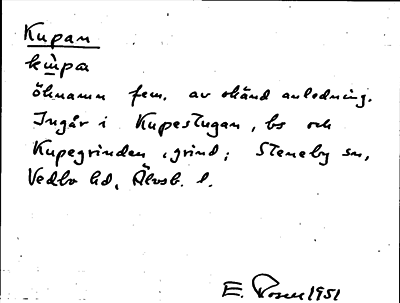 Kupan
kùpa
öknamn fem. av okänd anledning.
Ingår i Kupestugan, bs och
Kupegrinden, grind; Steneby sn,
Vedbo hd, Älvsb. l.
E. 1951